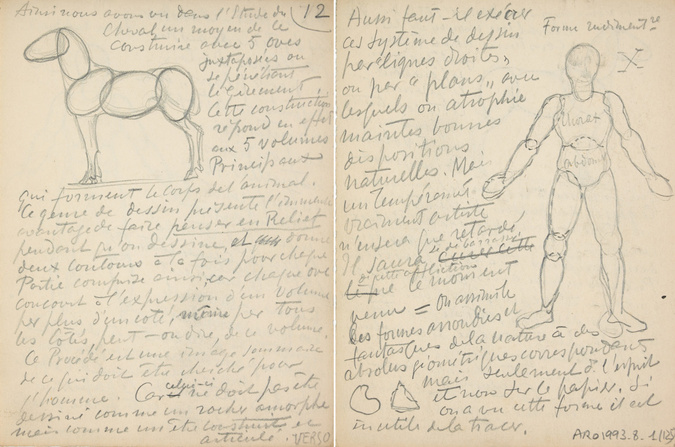 12
Ainsi nous avons vu dans l'Etude du
Cheval un moyen de le
construire avec 5 oves
juxtaposés ou
se pénétrant
légèrement
Cette construction
répond en effet
aux 5 volumes
Principaux
qui forment le corps de l'animal.
Ce genre de dessin présente l'immense
avantage de faire penser en Relief
pendant qu'on dessine, et donne
deux contours à la fois pour chaque
Partie comprise ainsi, car chaque ove
concourt à l'expression d'un volume
par plus d'un coté, même par tous
les cotés, peut-on dire, de ce volume.
Ce Procédé est une image sommaire
de ce qui doit etre cherché pour
l'homme. Car celui-ci ne doit pas être
dessiné comme un rocher amorphe
mais comme un être construit et
articulé. VERSO
Aussi faut-il
ce système de dessin
par lignes droites,
ou par "plans", avec
lesquels on atrophie
maintes bonnes
dispositions
naturelles. Mais
un tempérament
vraiment artiste
n'en sera que retardé
Il saura se débarrasser
de cette affliction
le moment
venu = On assimile
des formes arrondies et
fantasques de la nature à des
absolus géométriques correspondant
mais seulement à l'esprit
et non sur le papier. Si
on a vu cette forme il est
inutile de la tracer.
Forme rudimentre
X
thorax
abdomen
ARO1993.8.1(12)